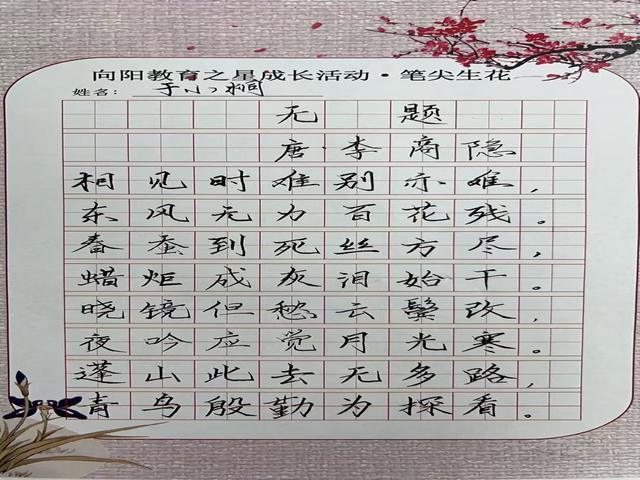 向阳教育之星成长活动·笔尖生花
姓名：于小桐
无题
唐李商隐
相见时难别亦难，
东风无力百花残。
春蚕到死丝方尽，
蜡炬成灰泪始干。
晓镜但愁云鬓改，
夜吟应觉月光寒。
蓬山此去无多路，
青鸟殷勤为探看。